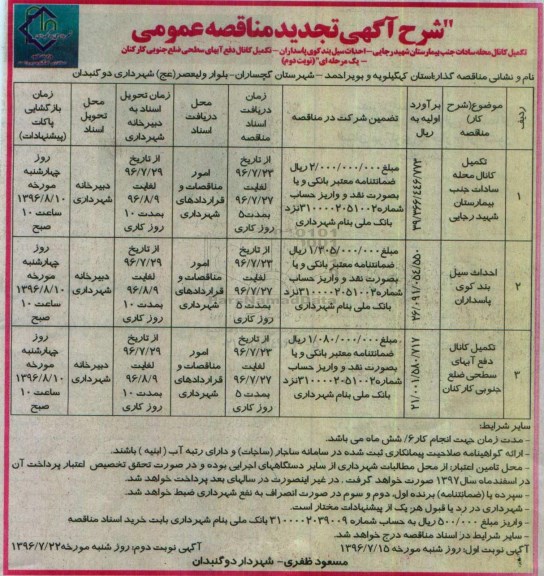 "شرح آگهی تجدید مناقصه عمومی
تکمیل کانال محله سادات جنب بیمارستان شهید رجایی – احداث سیل بند کوی پاسداران – تکمیل کانال دفع آبهای سطحی ضلع جنوبی کارکنان
– یک مرحله ای" (نوبت دوم)
نام و نشانی مناقصه گذار: استان کهگیلویه و بویراحمد – شهرستان گچساران – بلوار ولیعصر(عج) شهرداری دوگنبدان
ردیف
موضوع(شرح کار) مناقصه
برآورد اولیه به ریال
تضمین شرکت در مناقصه
زمان دریافت اسناد مناقصه
محل دریافت اسناد
زمان تحویل اسناد به دبیرخانه شهرداری
محل تحویل اسناد
زمان بازگشایی پاکات (پیشنهادات)
۱
تکمیل کانال محله سادات جنب بیمارستان شهید رجایی
۳۹/۳۶۶/۴۴۶/۷۷۳
مبلغ ۲/۰۰۰/۰۰۰/۰۰۰ ریال ضمانتنامه معتبر بانکی و یا بصورت نقد و واریز حساب شماره ۳۱۰۰۰۰۲۰۵۱۰۰۲ نزد بانک ملی بنام شهرداری
از تاریخ ۹۶/۷/۲۳ لغایت ۹۶/۷/۲۷ بمدت ۵ روز کاری
امور مناقصات و قراردادهای شهرداری
از تاریخ ۹۶/۷/۲۹ لغایت ۹۶/۸/۹ بمدت ۱۰ روز کاری
دبیرخانه شهرداری
روز چهارشنبه مورخه ۱۳۹۶/۸/۱۰ ساعت ۱۰ صبح
۲
احداث سیل بند کوی پاسداران
۲۶/۰۹۱/۰۵۴/۵۵۰
مبلغ ۱/۳۰۵/۰۰۰/۰۰۰ ریال ضمانتنامه معتبر بانکی و یا بصورت نقد و واریز حساب شماره ۳۱۰۰۰۰۲۰۵۱۰۰۲ نزد بانک ملی بنام شهرداری
از تاریخ ۹۶/۷/۲۳ لغایت ۹۶/۷/۲۷ بمدت ۵ روز کاری
امور مناقصات و قراردادهای شهرداری
از تاریخ ۹۶/۷/۲۹ لغایت ۹۶/۸/۹ بمدت ۱۰ روز کاری
دبیرخانه شهرداری
روز چهارشنبه مورخه ۱۳۹۶/۸/۱۰ ساعت ۱۰ صبح
۳
تکمیل کانال دفع آبهای سطحی ضلع جنوبی کارکنان
۲۱/۰۰۱/۵۸۰/۷۱۷
مبلغ ۱/۰۸۰/۰۰۰/۰۰۰ ریال ضمانتنامه معتبر بانکی و یا بصورت نقد و واریز حساب شماره ۳۱۰۰۰۰۲۰۵۱۰۰۲ نزد بانک ملی بنام شهرداری
از تاریخ ۹۶/۷/۲۳ لغایت ۹۶/۷/۲۷ بمدت ۵ روز کاری
امور مناقصات و قراردادهای شهرداری
از تاریخ ۹۶/۷/۲۹ لغایت ۹۶/۸/۹ بمدت ۱۰ روز کاری
دبیرخانه شهرداری
روز چهارشنبه مورخه ۱۳۹۶/۸/۱۰ ساعت ۱۰ صبح
سایر شرایط:
– مدت زمان جهت انجام کار ۶/ شش ماه می باشد.
– ارائه گواهینامه صلاحیت پیمانکاری ثبت شده در سامانه ساجار (ساجات) و دارای رتبه آب (ابنیه) باشند.
– محل تامین اعتبار: از محل مطالبات شهرداری از سایر دستگاههای اجرایی بوده و در صورت تحقق تخصیص اعتبار پرداخت آن
در اسفندماه سال ۱۳۹۷ صورت خواهد گرفت. در غیر اینصورت در سالهای بعد پرداخت خواهد شد.
– سپرده یا (ضمانتنامه) برنده اول، دوم و سوم در صورت انصراف به نفع شهرداری ضبط خواهد شد.
– شهرداری در رد یا قبول هر یک از پیشنهادات مختار است.
– واریز مبلغ ۵۰۰/۰۰۰ ریال به حساب شماره ۳۱۰۰۰۰۲۰۳۹۰۰۹ بانک ملی بنام شهرداری بابت خرید اسناد مناقصه
– سایر شرایط در اسناد مناقصه درج خواهد شد.
آگهی نوبت اول: روز شنبه مورخه ۱۳۹۶/۷/۱۵ آگهی نوبت دوم: روز شنبه مورخه ۱۳۹۶/۷/۲۲
مسعود ظفری – شهردار دوگنبدان